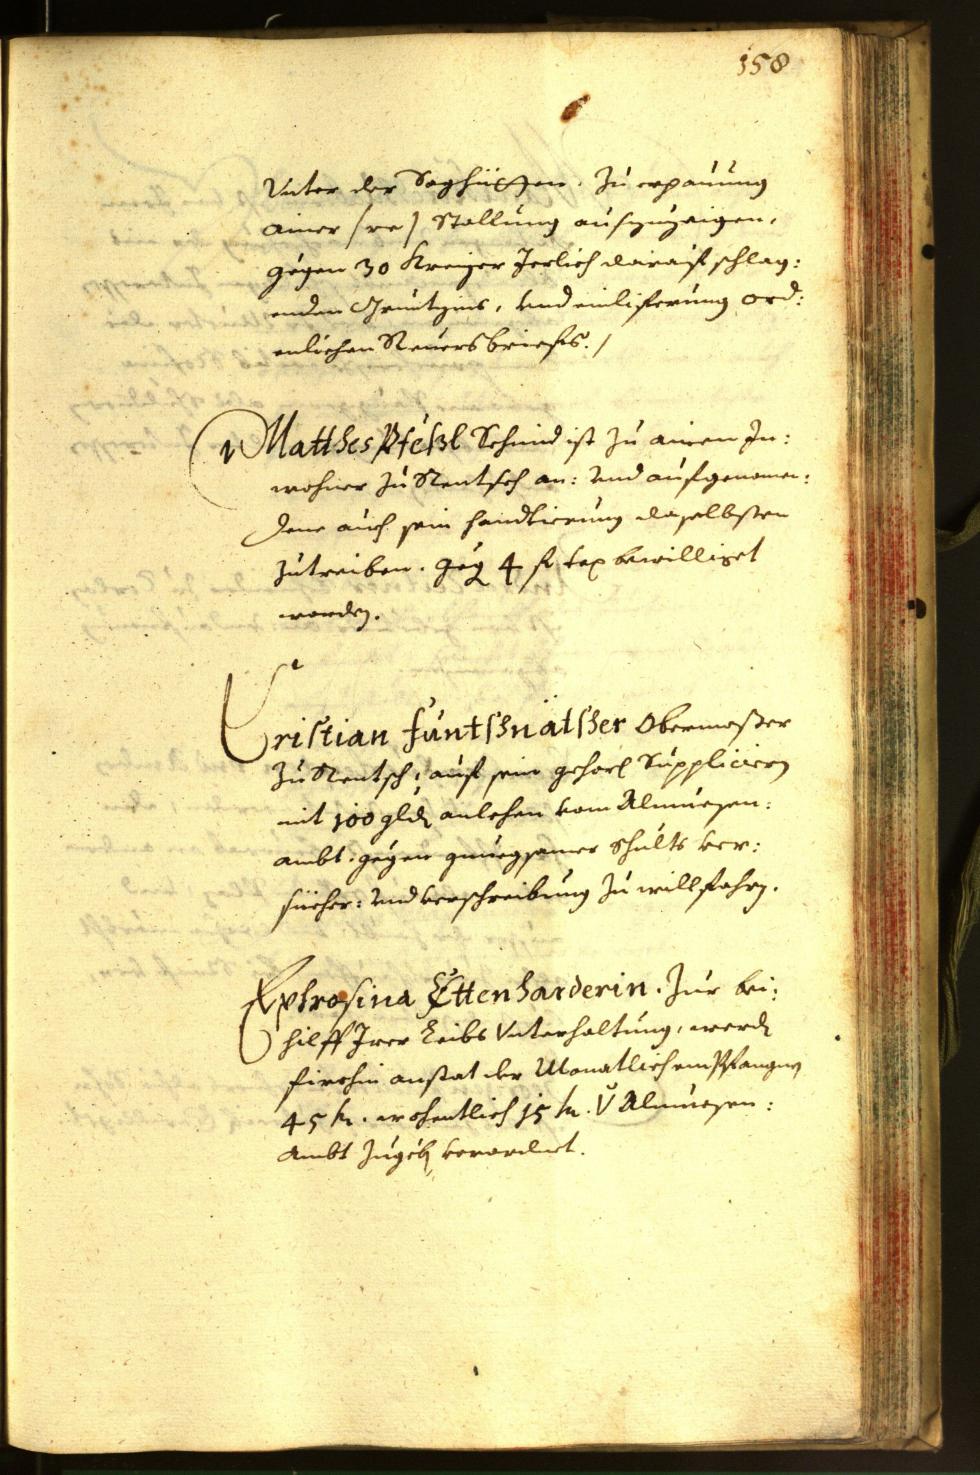 158
Unter der Saghütten. Zu erpauung
ainer /:re:/ Stallung aufzuzaigen,
gegen 30 Kreizer Jerlich darauf schlag:
enden Gruntzins, und einliferung ord:
enlichen Reversbriefs./
Matthes Pfeßl Schmid ist zu ainen In:
wohner zu Rentsch an: und aufgenomen:
deme auch sein handtierung daselbsten
zutreiben. geg 4 fl tax bewilliget
worden.
Cristian Obermesser
zu Rentsch, auf sein gehors Suppliciern
mit 100 gldn anlehen vom Almuesen:
ambt. gegen gnuegsamer Schults ver:
sicher: und verschreibung zu willfahrn.
Ephrosina Ettenharderin. Zur bei:
hilff Irer Leibs Unterhaltung, werdn
firohin anstat der Monatlich empfangnen
45 kr. wochentlich 15 kr. v Almuesen:
Ambt zugebn verordnet.